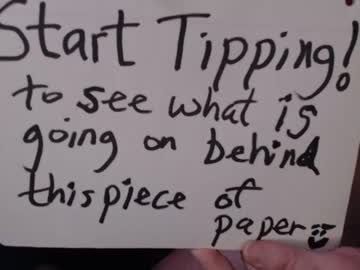 Start Tipping!
to see what is
going on behind
this piece of
paper